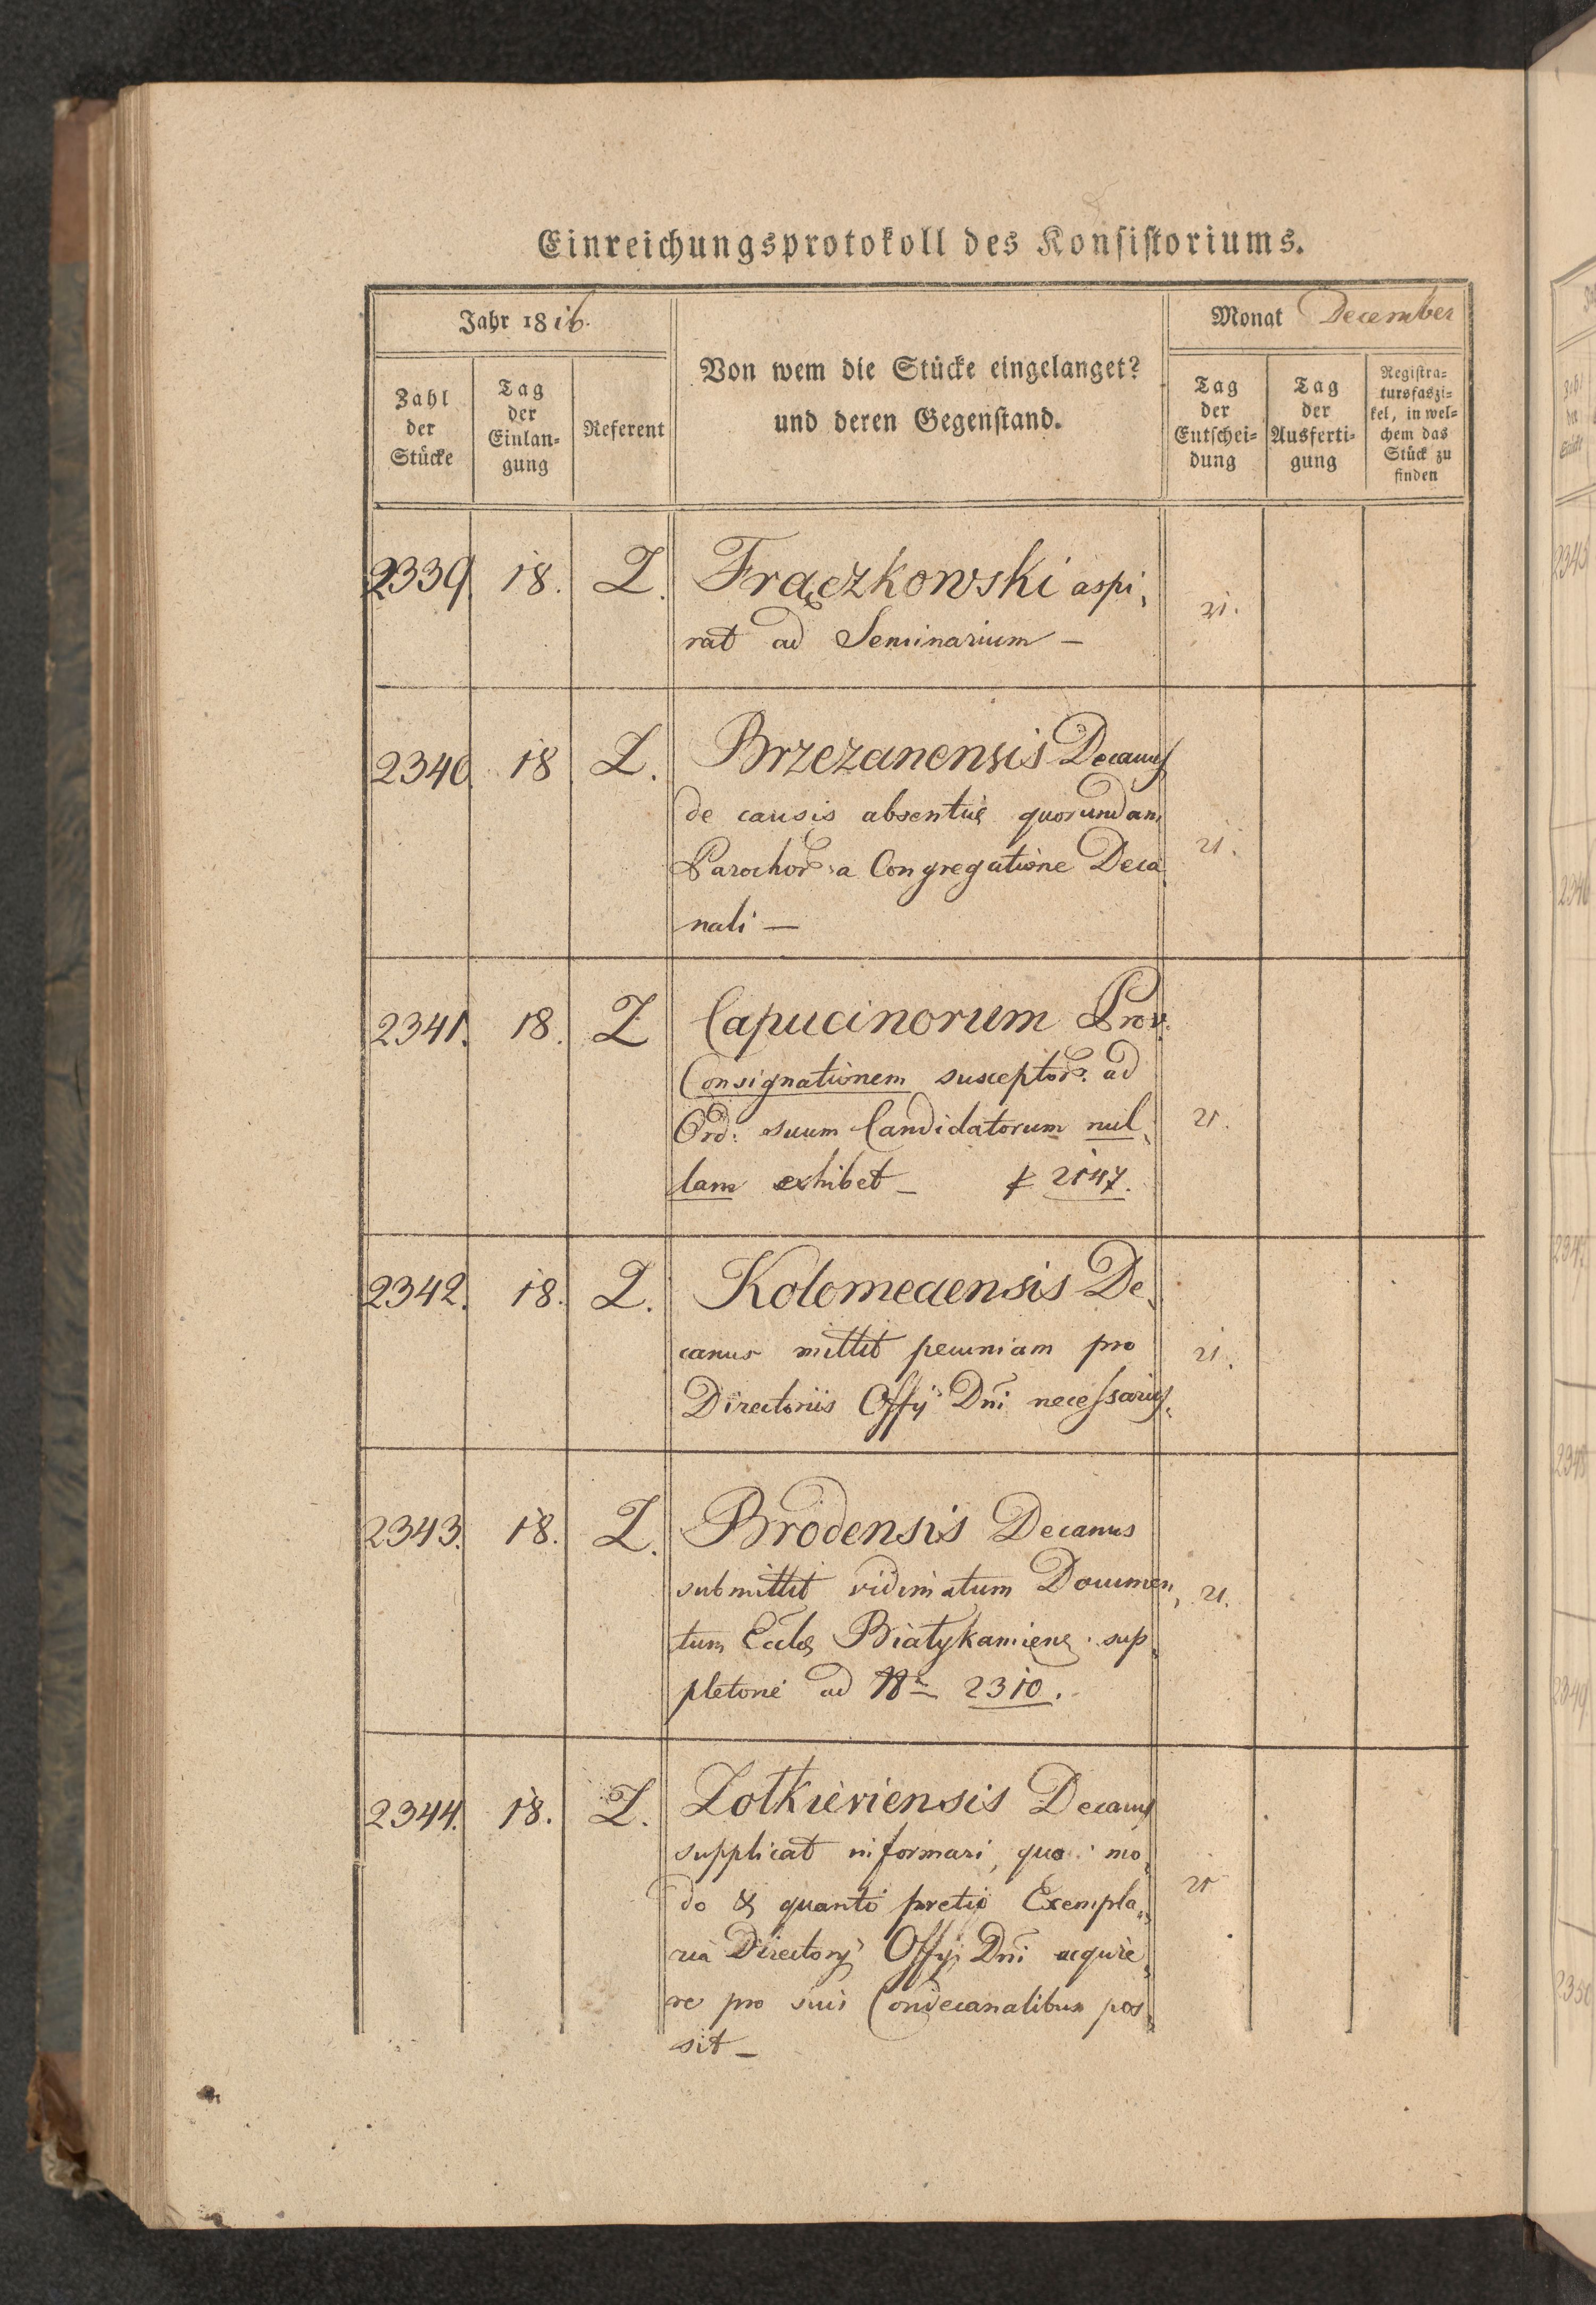 Einreichungsprotokoll des Konsistoriums.
Jahr 1816.
Monat December
Zahl der Stücke
Tag der Einlan-gung
Referent
Von wem die Stücke eingelanget?
und deren Gegenstand.
Tag der Entschei-dung
Tag der Ausferti-gung
Registra-tursfaszi-kel, in wel-chem das Stück zu finden
2339. 18. Z. Frączkowski aspi,
rat ad Seminarium — 21.
2340. 18 Z. Brzezanensis Decanus
de causis absentiæ quorundam
Parochor: a Congregatione Deca, 21.
nali —
2341. 18. Z Capucinorum Prov.
Consignationem susceptor: ad
Ord: suum Candidatorum nul, 21.
lam exhibet — 2147.
2342. 18. Z. Kolomeaensis De,
canus mittit pecuniam pro 21.
Directoriis Offÿ Dni necessariis.
2343. 18. Z. Brodensis Decanus
submittit vidimatum Documen, 21.
tum Eccle Białykamiene sup,
pletorie ad N 2310.
2344. 18. Z. Zołkieviensis Decanus
supplicat informari, quo mo,
do & quanti pretio Exempla, 21
ria Directorÿ Offÿ Dni acquire,
re pro suis Condecanalibus pos,
sit —